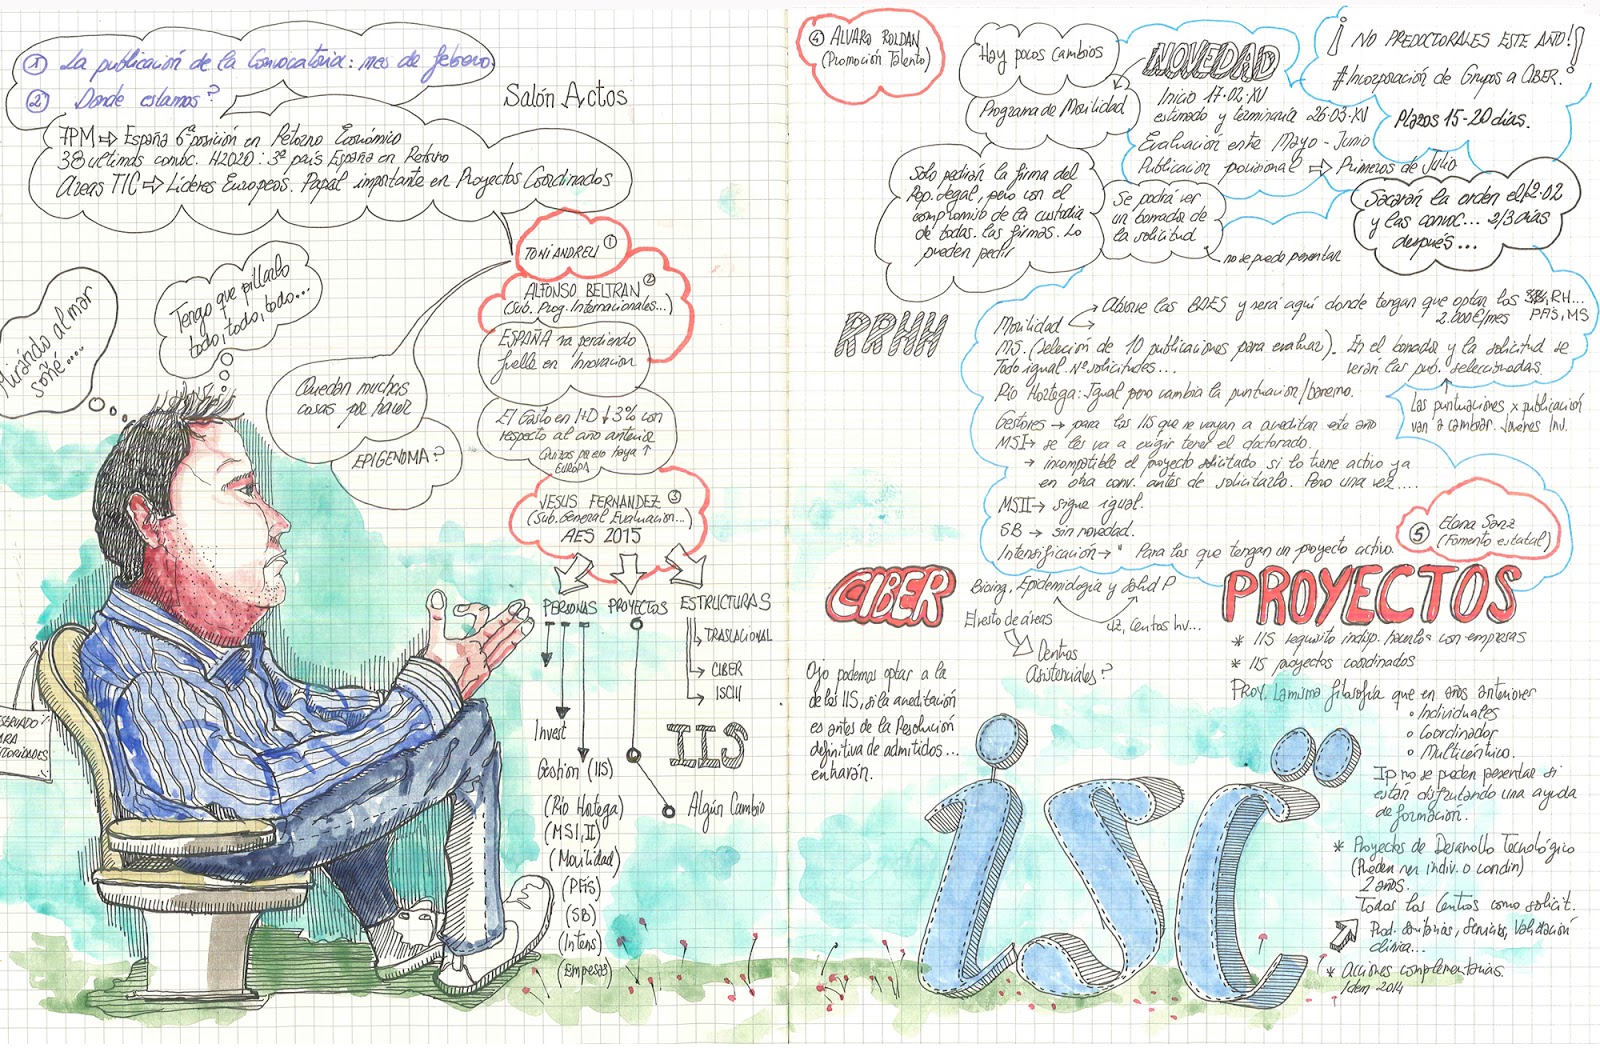 ① La publicación de la Convocatoria: mes de febrero.
② Donde estamos?
Salón Actos
7PM ⇨ España 6ª posición en Retorno Económico
38 ultimas convoc. H2020: 3º país España en Retorno
Areas TIC ⇨ Líderes Europeos. Papel importante en Proyectos Coordinados
TONI ANDREU ①
ALFONSO BELTRAN ②
(Sub. Prog. Internacionales...)
ESPAÑA va perdiendo
fuelle en Innovacion
El Gasto en I+D ↓ 3% con
respecto al año anterior
EUROPA
JESUS FERNANDEZ ③
(Sub. General Evaluacion...)
AES 2015
Mirando al mar
soñé....
Tengo que pillarlo
todo, todo, todo...
Quedan muchas
cosas por hacer
EPIGENOMA?
PARA
PERSONAS
Invest
Gestion (IIS)
(Río Hortega)
(MSI, II)
(Movilidad)
(PFIS)
(SB)
(Intens)
(Empresas)
PROYECTOS
ESTRUCTURAS
TRASLACIONAL
CIBER
ISCIII
IIS
Algún Cambio
④ ALVARO ROLDAN
(Promoción Talento)
Hay pocos cambios
Programa de Movilidad
NOVEDAD
Inicio 17-02-XV
estimado y terminaria 26-03-XV
Evaluación entre Mayo - Junio
Publicacion provisional ⇨ Primeros de Julio
¡ NO PREDOCTORALES ESTE AÑO!
#Incorporación de Grupos a CIBER.
Plazos 15-20 días.
Sacarán la orden el 12-02
y las convoc... 2/3 días
después...
Solo pedirán la firma del
Rep. legal, pero con el
compromiso de la custodia
de todas las firmas. Lo
pueden pedir
Se podrá ver
un borrador de
la solicitud
no se puede presentar
RRHH
Movilidad
Absorve las BAES y será aquí donde tengan que optar los RH...
2.000€/mes
MS. (Selección de 10 publicaciones para evaluar). En el borrador y la solicitud se
verán las pub. seleccionadas.
Todo igual. Nº solicitudes...
Río Hortega: Igual pero cambia la puntuacion/baremo.
Las puntuaciones x publicación
van a cambiar. Jovenes Inv.
Gestores → para los IIS que se vayan a acreditar este año
MSI → se les va a exigir tener el doctorado.
→ incompatible el proyecto solicitado si lo tiene activo ya
en otra conv. antes de solicitarlo. Pero una vez....
MSII → sigue igual.
SB → sin novedad.
Intensificación → * Para los que tengan un proyecto activo.
⑤ Elena Sanz
(Fomento estatal)
CIBER
Bioing, Epidemiologia y Salud P
El resto de áreas
Centros
Asistenciales?
Ojo podemos optar a la
de los IIS, si la acreditación
es antes de la Resolución
definitiva de admitidos...
entrarán.
PROYECTOS
* IIS requisito indisp. hacerlos con empresas
* IIS proyectos coordinados
Proy. La misma filosofía que en años anteriores
◦ Individuales
◦ Coordinador
◦ Multicéntrico.
Ip no se pueden presentar si
están disfrutando una ayuda
de formación.
* Proyectos de Desarrollo Tecnológico
(Pueden ser indiv. o coordin)
2 años.
Todos los Centros como solicit.
Prod. Sanitarios, Servicios, Validación
clinica...
* Acciones complementarias.
Idem 2014
isc